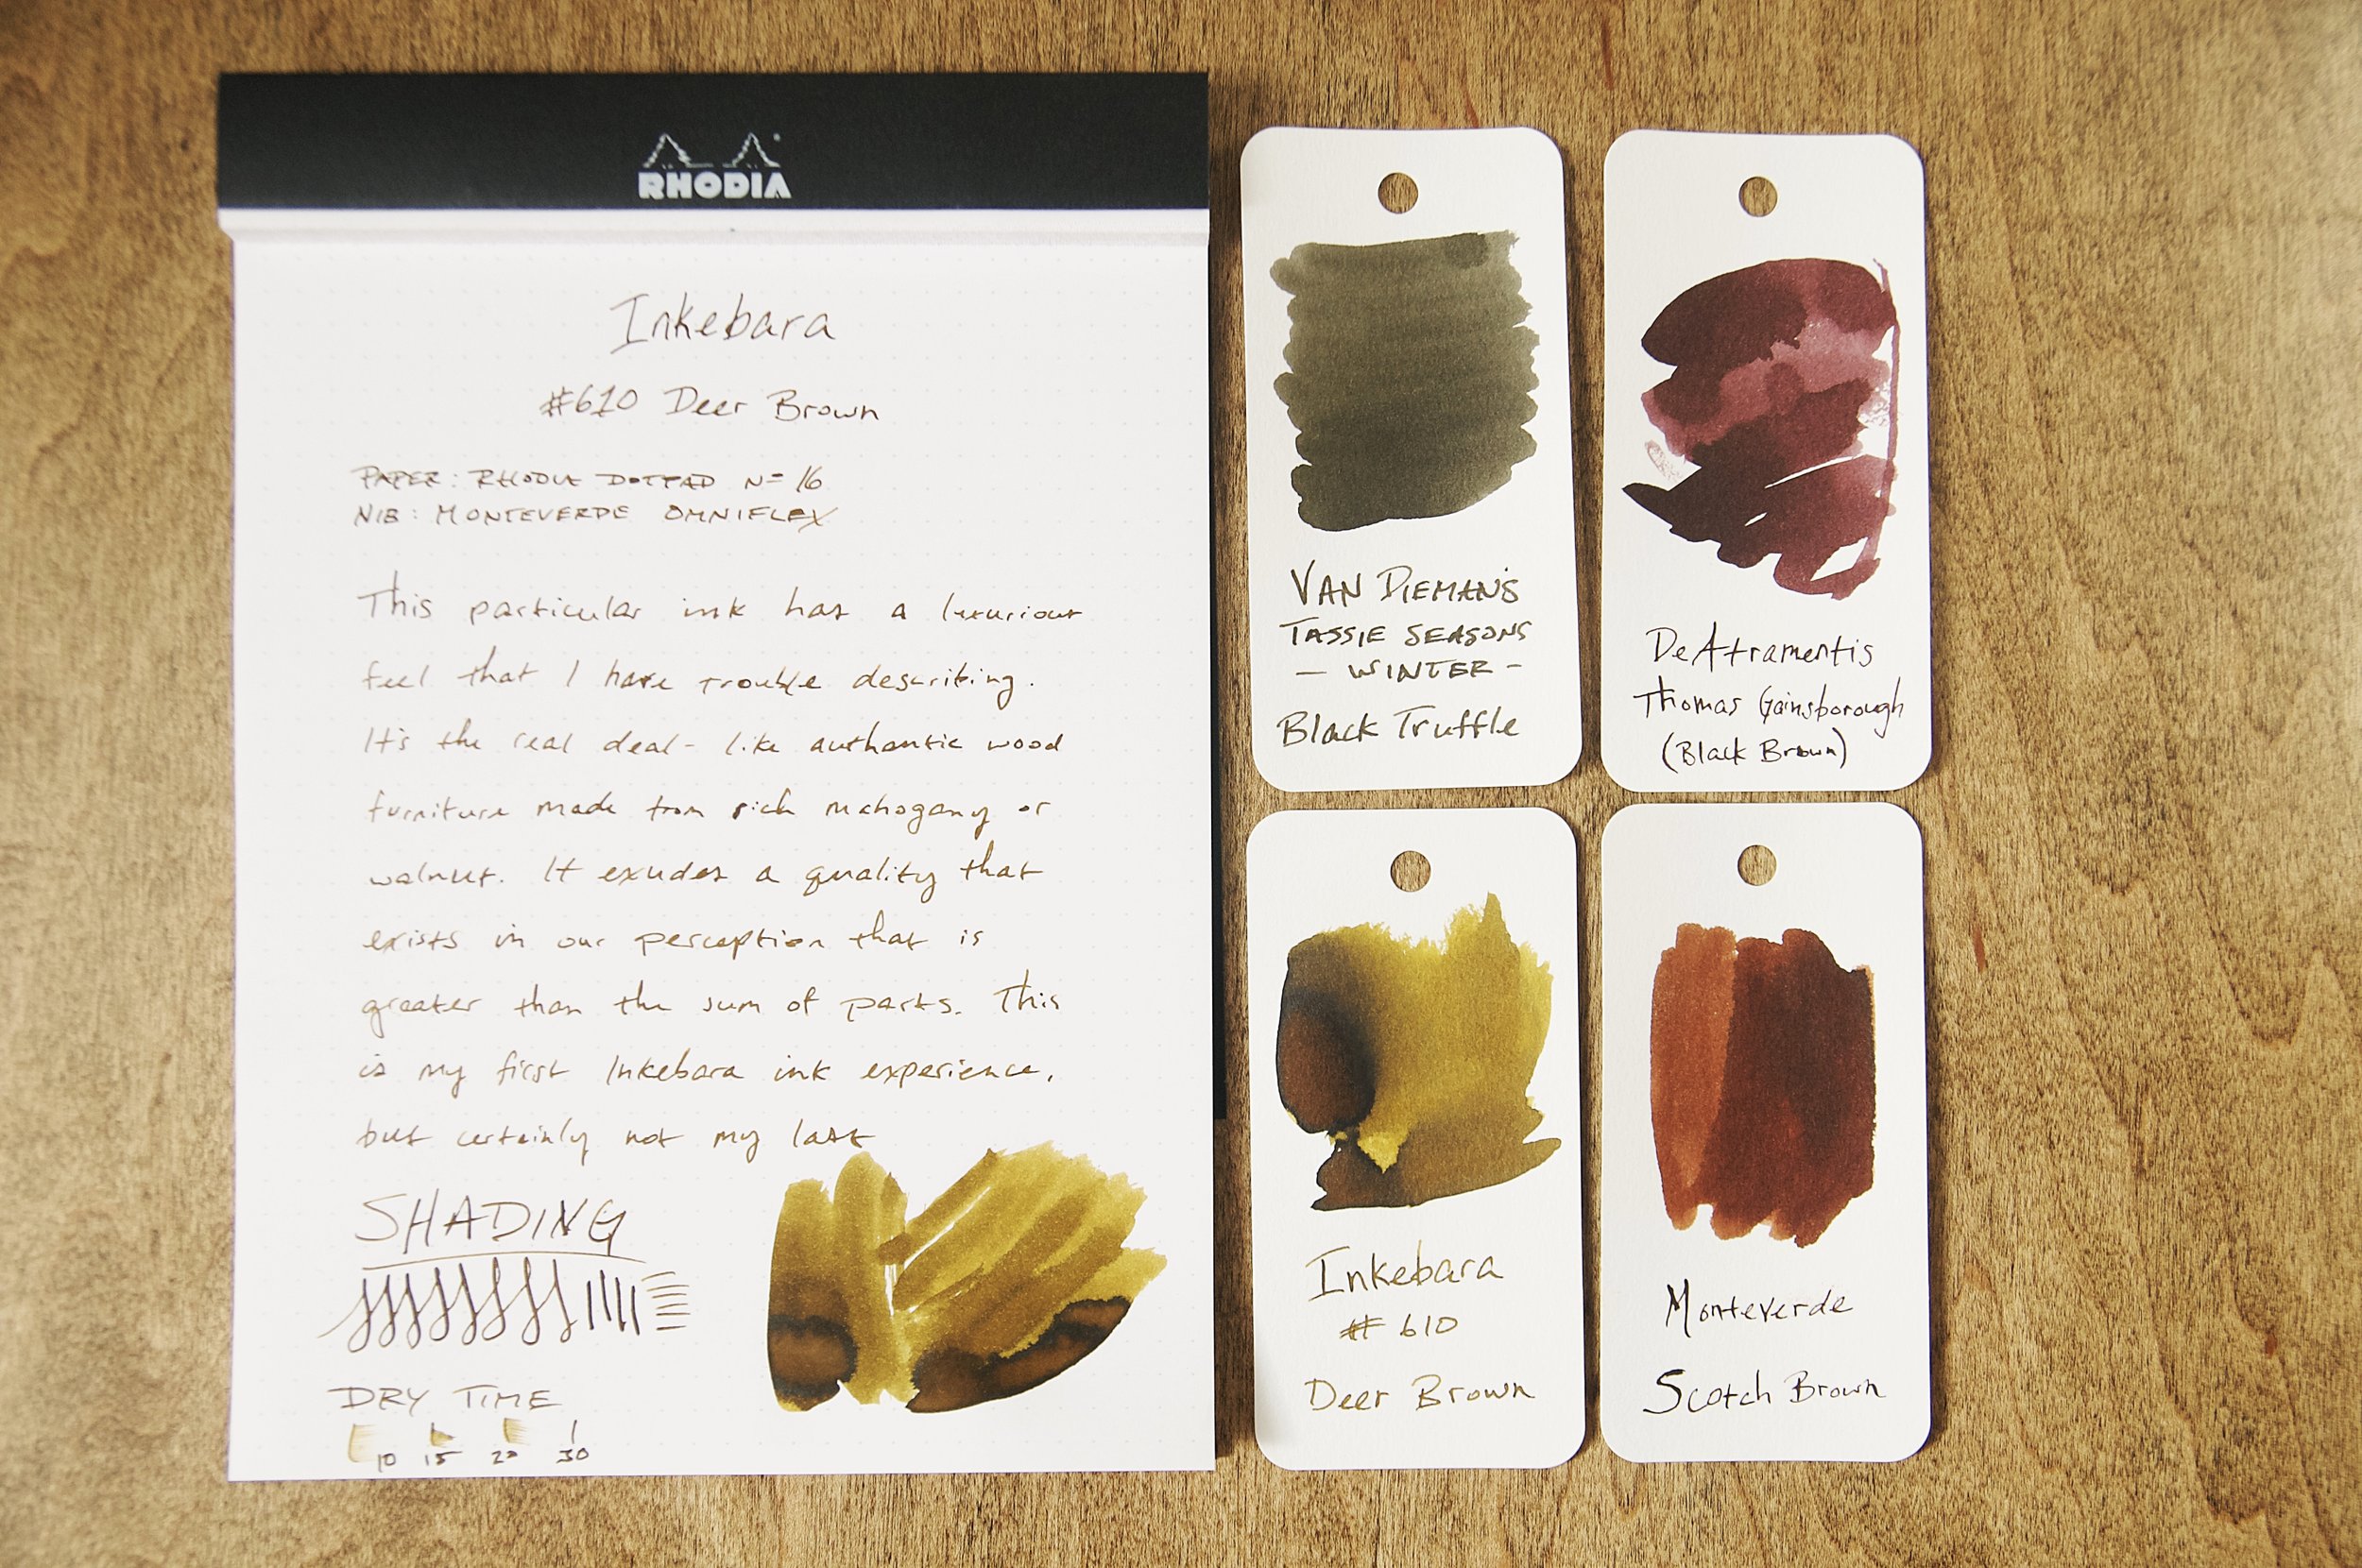 RHODIA
Inkebara
#610 Deer Brown
PAPER: RHODIA DOTPAD N= 16
NIB: MONTEVERDE OMNIFLEX
This particular ink has a luxurious
feel that I have trouble describing.
It's the real deal - like authentic wood
furniture made from rich mahogany or
walnut. It exudes a quality that
exists in our perception that is
greater than the sum of parts. This
is my first Inkebara ink experience,
but certainly not my last
SHADING
DRY TIME
10 15 20 30
VAN DIEMAN'S
TASSIE SEASONS
- WINTER -
Black Truffle
DeAtramentis
Thomas Gainsborough
(Black Brown)
Inkebara
# 610
Deer Brown
Monteverde
Scotch Brown